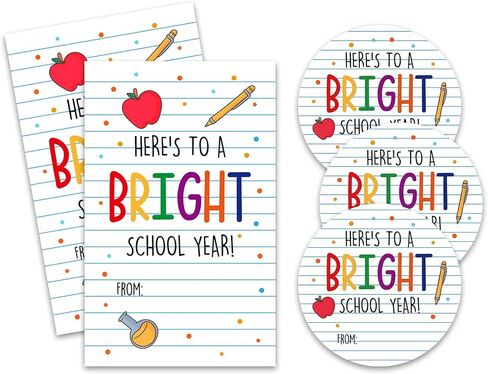 HERE'S TO A
BRIGHT
SCHOOL YEAR!
FROM:
HERE'S TO A
BRIGHT
SCHOOL YEAR!
FROM:
HERE'S TO A
BRIGHT
SCHOOL YEAR!
HERE'S TO A
BRIGHT
HERE'S TO A
BRIGHT
SCHOOL YEAR!
FROM: